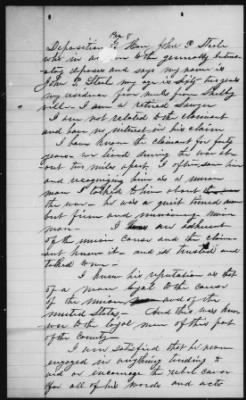 Deposition of Hon John P. Steele
who in answer to the generally interro-
gatory deposes and says my name is
John P. Steele my age is Sixty two years
my residence four miles from Shelby
ville. I am a retired
I am not related to the claimant
and have no interest in his claim
I have known the claimant for forty
years we lived during the war ab-
out two miles apart I often saw him
and recognizing him as a union
man I talked to him about
the war - he was a quiet timid man
but firm and union
man. I am adherent
of the union cause and the claim-
ant knew it - and so trusted and
talked to me -
I knew his reputation as that
of a man loyal to the cause
of the union and of the
United States - And this was known
to the loyal men of this part
of the County -
I am satisfied that he never
engaged in anything tending to
aid or encourage the rebel cause
for all of his words and acts